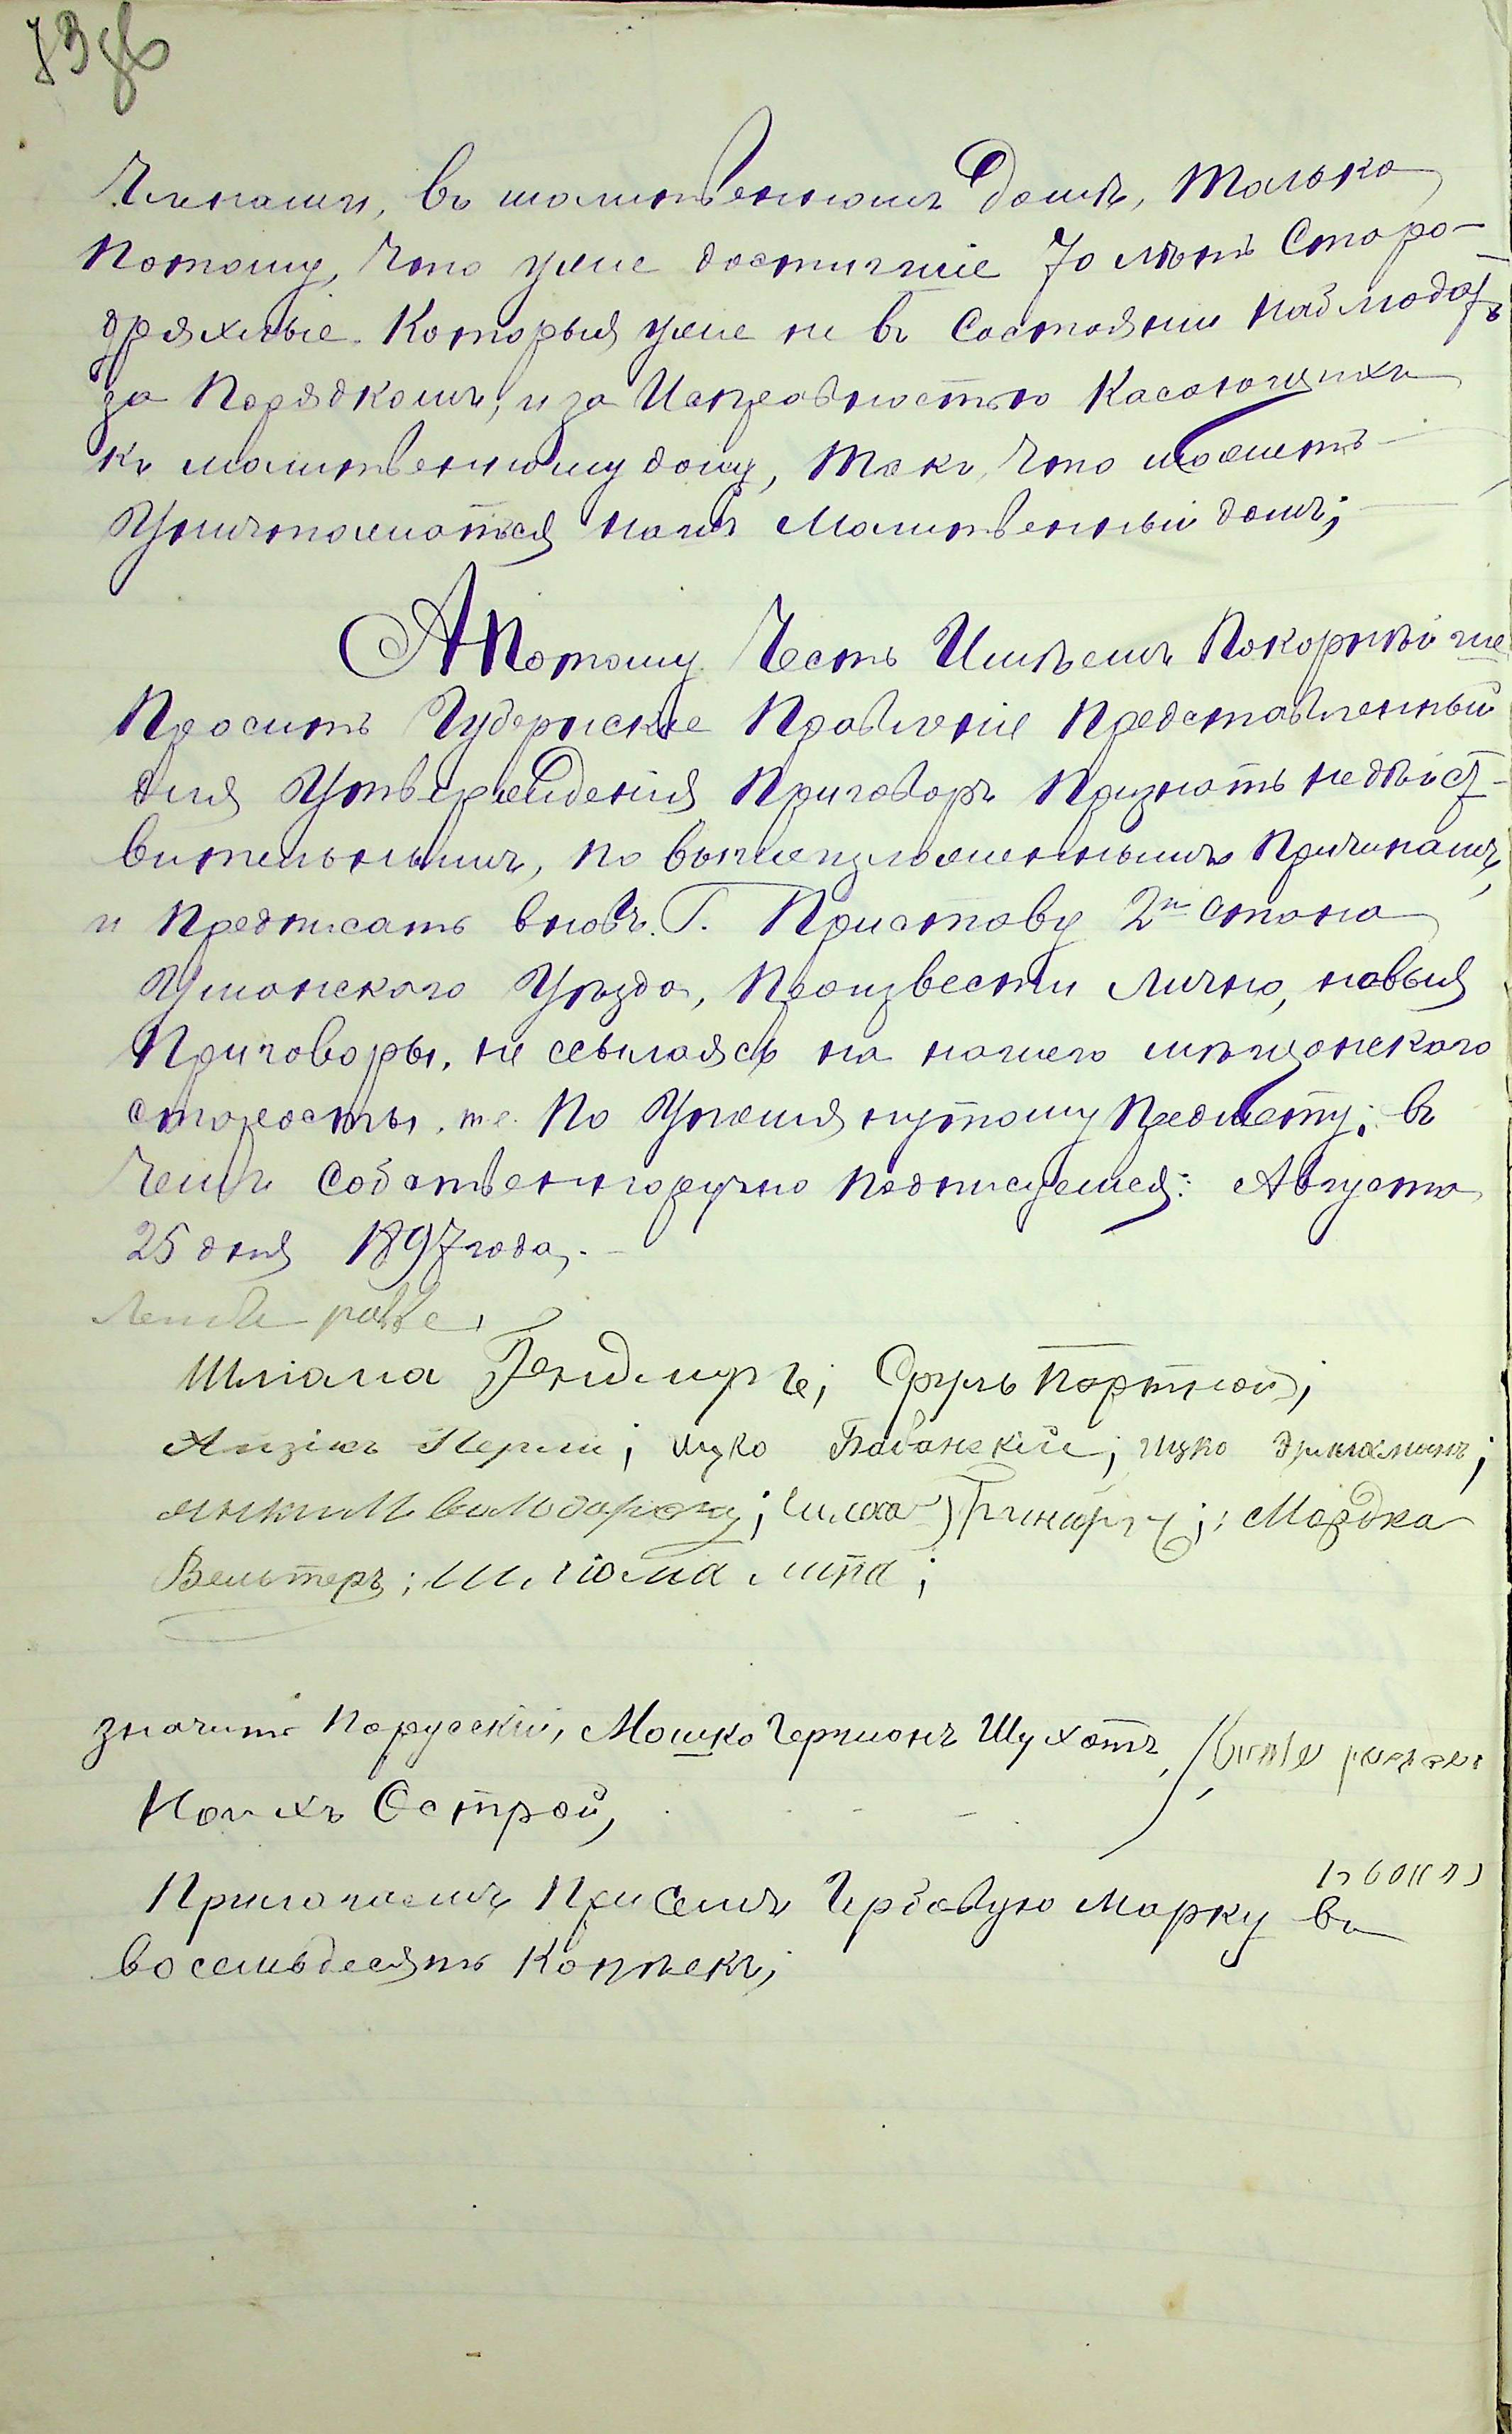 73 об
Членами, въ молитвенномъ домѣ, только
потому, что уже достигшіе 70 лѣтъ Старо-
дряхлые. Которыя уже не въ Состояніи наблюдать
за Порядкомъ, и за Исправностью Касающихся
къ молитвенному дому, такъ, что можетъ
Уничтожаться нашъ Молитвенный домъ;
А Потому Честь Имѣемъ Покорнѣйше
Просить Губернское Правленіе Представленный
для Утвержденія Приговоръ Признать недѣйст-
вительнымъ, по вышеизложеннымъ Причинамъ,
и Предписать вновь Г. Приставу 2го Стана
Уманского Уѣзда, Произвести Лично, новыя
Приговоры, не ссылаясь на нашего мѣщанского
старосты, по Упомянутому Предмету; въ
чемъ Собственноручно подписуемся: Августа
25 дня 1897 года.
Шлиома ; Сруль Портной;
Айзикъ Перли; ицко Бабанскій; ицко ;
; ; Мордка
Вельтеръ; Шлiома липа;
значитъ Порусскій, Мошко Гершонъ Шухатъ,
Острой,
Прилагаемъ При Семъ Гербовую Марку въ
восемьдесятъ Копѣекъ;